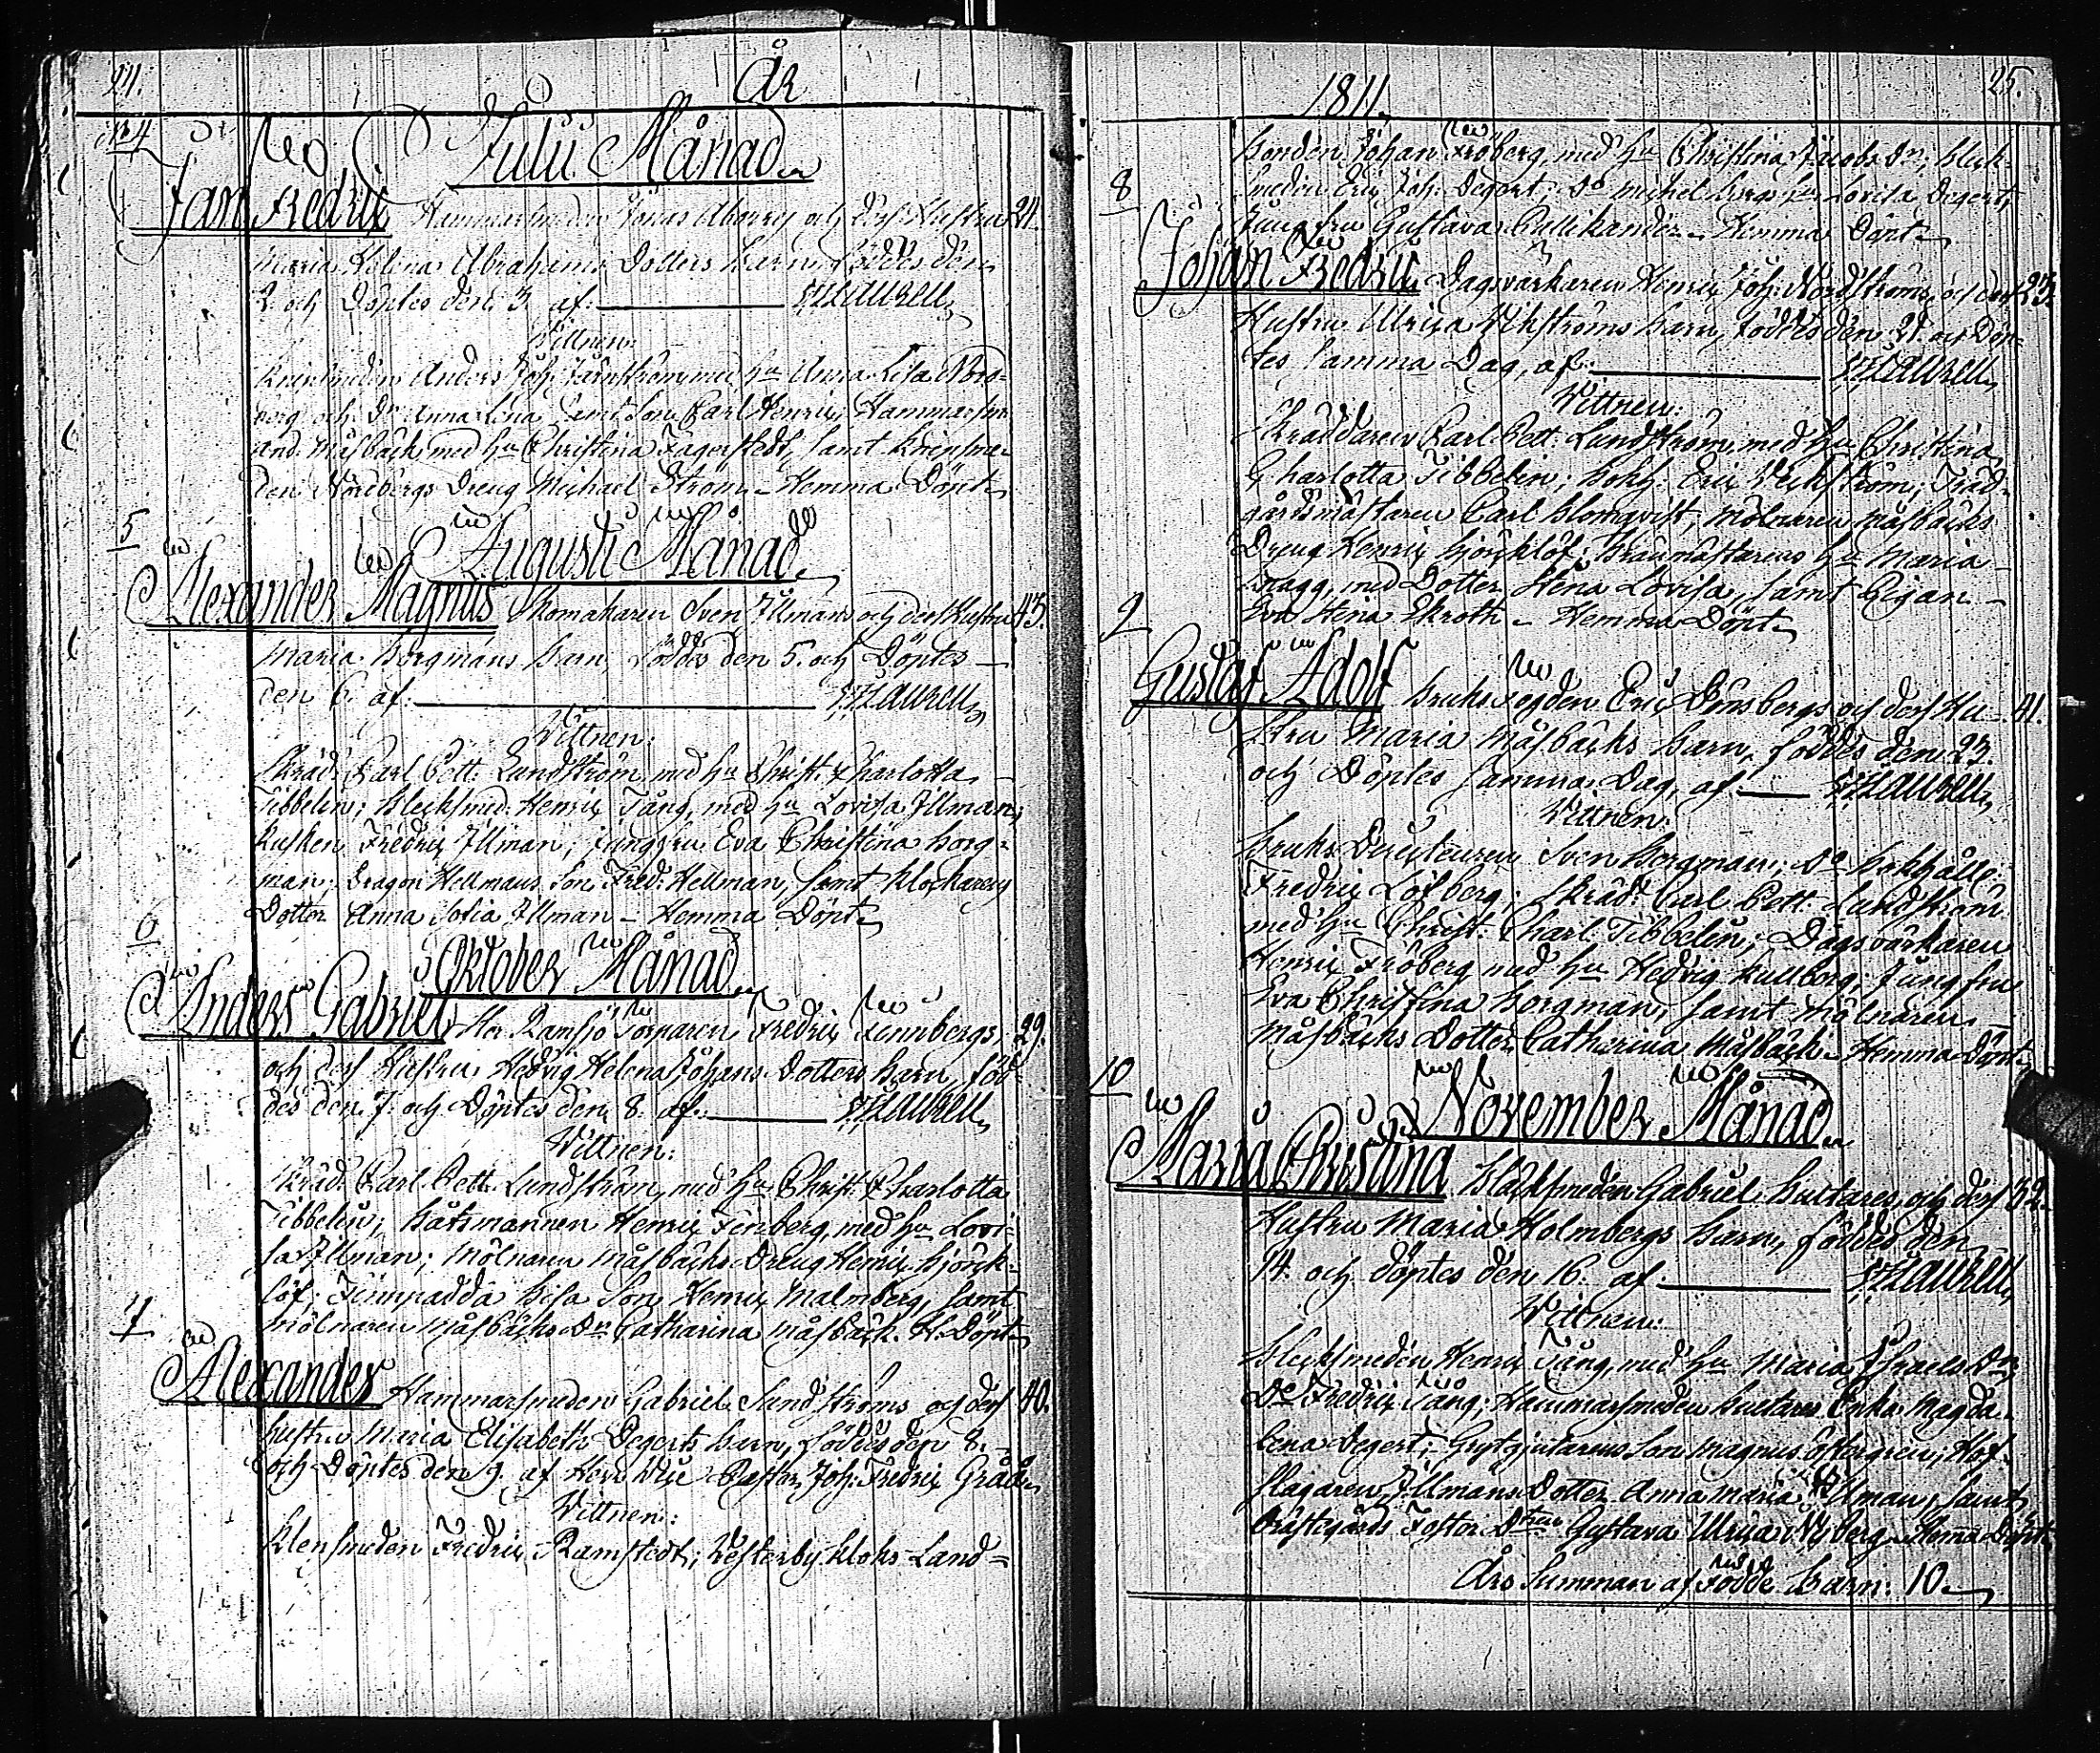 24.
År
N:o 4
Julii Månad.
Jan Fredric Hammarsmeden Jonas Åbergs och dess Hustru 24.
Maria Helena Abrahams Dotters Barn, föddes den
2. och Döptes den 3. af: F: Laurell,
Vittnen:
Knipsmeden Anders Joh: Järnström, med h:u Anna Lisa Nord-
berg, och D:r Anna Lena, samt Son Carl Henric; Hammarsm:
And: Måsbäck med h:u Christina Fagerstedt, samt Knipsme-
den Nordbergs Dreng Michael Ström. Hemma Döpt.
5
Augusti Månad.
Alexander Magnus Skomakaren Sven Illmans och dess Hustru 43.
Maria Borgmans Barn, föddes den 5. och Döptes
den 6. af: F: Laurell,
Vittnen:
Skräd: Carl Pett: Lundström med h:u Christ: Charlotta
Tibbelin; Blecksmed: Henric Tång, med h:u Lovisa Illman;
Kusken Fredric Illman; jungfru Eva Christina Borg-
man; Dragon Hellmans Son Fred: Hellman, samt Klockarens
Dotter Anna Sofia Illman. Hemma Döpt.
6
Oktober Månad.
Anders Gabriel Ramsjö Torparen Fredric Finnbergs, 29.
och dess Hustru Hedvig Helena Johans Dotters Barn, föd-
des den 7. och Döptes den 8. af: F: Laurell,
Vittnen:
Skräd: Carl Pett: Lundström, med h:u Christ: Charlotta
Tibbelin; Båtsmannen Henric Finberg, med h:u Lovi-
sa Illman; Mölnaren Måsbäcks Dreng Henric Björck-
löf; Finnpadda Lisa Son Henric Malmberg, samt
Mölnaren Måsbäcks D:r Catharina Måsbäck. H. Döpt.
7
Alexander Hammarsmeden Gabriel Sandströms och dess 40.
hustru Maria Elisabeth Degerts Barn, föddes den 8.
och Döptes den 9. af Herr Vice Pastor Joh: Fredric Gråå.
Vittnen:
Klensmeden Fredric Ramstedt; Vesterby Kloks Land-
1811.
25.
Bonden Johan Fröberg, med h:u Christina Jacobs D:r; Bleck-
smeden Eric Joh: Degert; D:o Michel Bergs h:u Lovisa Degert,
8
Jungfru Gustava Pullikander. Hemma Döpt.
Johan Fredric Dagsvärkaren Henric Joh: Nordströms och dess 23.
Hustru Ulrica Vikströms Barn, föddes den 21. och Döp-
tes samma Dag, af: F: Laurell,
Vittnen:
Skräddaren Carl Pett: Lundström, med h:u Christina
Charlotta Tibbelin; Bokh: Eric Veckström; Träd-
gårdsmästaren Carl Blomqvist; Mölnaren Måsbäcks
Dreng Henric Björcklöf; Braumästarens h:u Maria
Bragg, med Dotter Stina Lovisa, samt Pigan
Eva Stina Ekroth. Hemma Döpt.
9
Gustaf Adolf Bruks Fogden Eric Grisbergs och dess Hu- 41.
stru Maria Måsbäcks Barn, föddes den 23.
och Döptes samma Dag, af F: Laurell,
Vittnen:
Bruks Directeuren Sven Bergman; D:o Bokhålle:
Fredric Löfberg; Skräd: Carl Pett: Lundström
med h:u Christ: Charl: Tibbelin; Dagsvärkaren
Henric Fröberg med h:u Hedvig Kullberg; Jungfru
Eva Christina Borgman, samt Mölnaren
Måsbäcks Dotter Catharina Måsbäck. Hemma Döpt.
10
November Månad.
Maria Christina Blecksmeden Gabriel Bultares och dess 32.
Hustru Maria Holmbergs Barn, föddes den
14. och döptes den 16. af: F: Laurell,
Vittnen:
Blecksmeden Henric Tång, med h:u Maria Israels D:r;
D:o Fredric Tång; Hammarsmeden Bultares Enka Magda-
lena Degert; Grytgjutarens Son Magnus Östergren; Hof-
slagaren Illmans Dotter Anna Maria Illman, samt
Prästgårds Foster D:tern Gustava Ulrica Nyberg. Hema Döpt.
Års Summan af Födde Barn: 10.